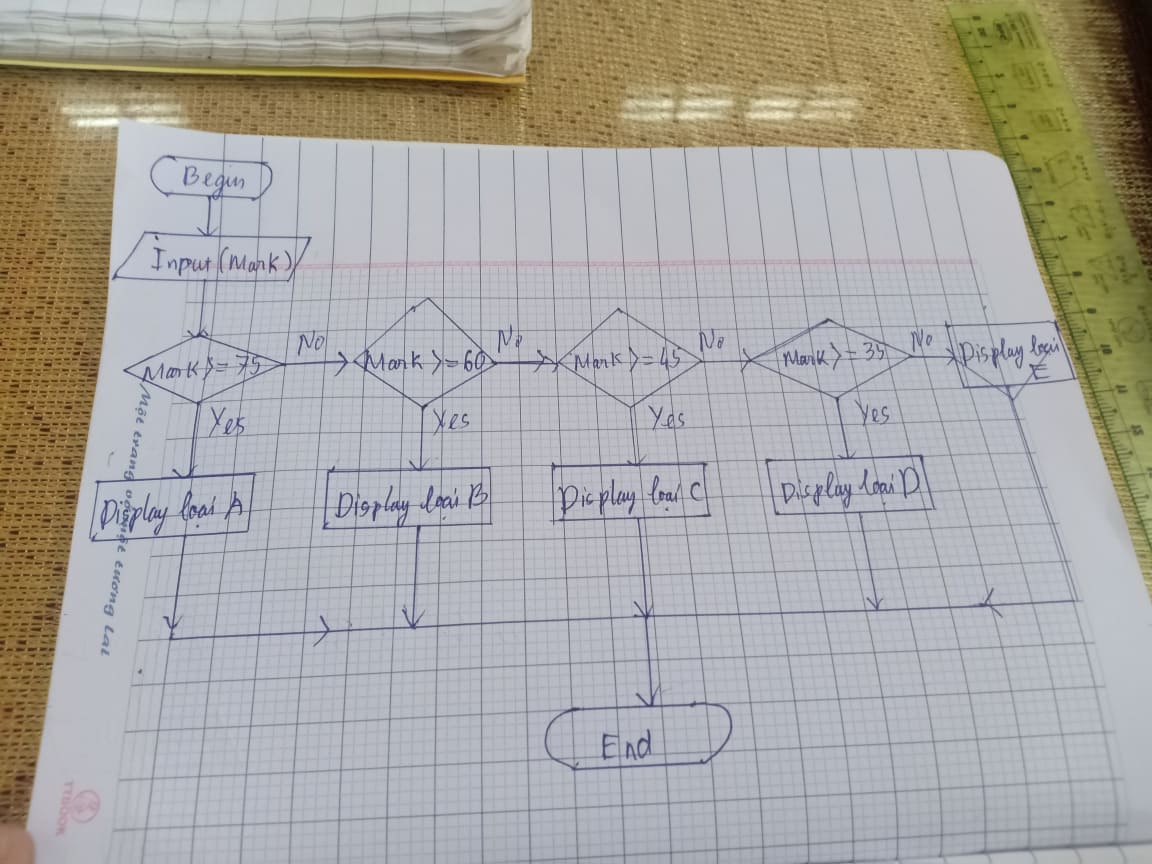 Begin
Input (Mark)
Mark >= 75
No
Mark >= 60
No
Mark >= 45
No
Mark >= 35
No
Display loại
E
Yes
Yes
Yes
Yes
Display loại A
Display loại B
Display loại C
Display loại D
End
trang
tương lai